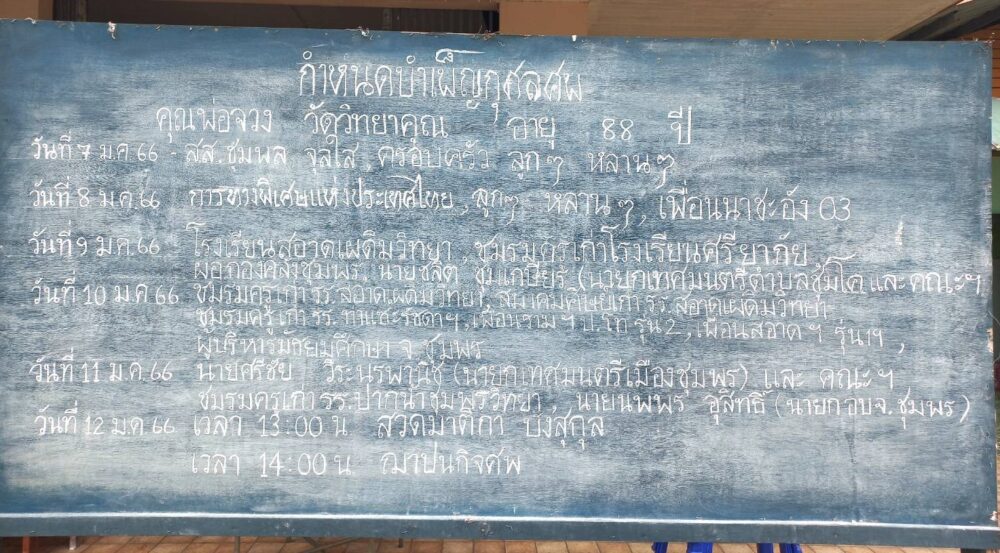 กำหนดบำเพ็ญกุศลศพ
คุณพ่อจวง วัดวิทยาคุณ อายุ 88 ปี
วันที่ 7 ม.ค. 66 - สส.ชุมพล จุลใส , ครอบครัว ลูกๆ หลานๆ
วันที่ 8 ม.ค. 66 การทางพิเศษแห่งประเทศไทย , ลูกๆ หลานๆ , เพื่อนนาชะอัง 03
วันที่ 9 ม.ค. 66 โรงเรียนสอาดเผดิมวิทยา , ชมรมครูเก่าโรงเรียนศรียาภัย
ผอ.กองคลังชุมพร. นายชลิต ชุมเกษียร (นายกเทศมนตรีตำบลชุมโค และคณะฯ
วันที่ 10 ม.ค 66 ชมรมครูเก่า รร.สอาดเผดิมวิทยา, สมาคมศิษย์เก่า รร.สอาดเผดิมวิทยา
ชมรมครูเก่า รร.ท่าแซะรัชดาฯ , เพื่อนรามฯ ป.โท รุ่น 2 , เพื่อนสอาดฯ รุ่น 19 ,
ผู้บริหารมัธยมศึกษา จ.ชุมพร
วันที่ 11 ม.ค. 66 นายศรีชัย วีระนรพานิช (นายกเทศมนตรีเมืองชุมพร) และ คณะฯ
ชมรมครูเก่า รร.ปากน้ำชุมพรวิทยา , นายนพพร อุสิทธิ์ (นายก อบจ.ชุมพร)
วันที่ 12 ม.ค 66 เวลา 13:00 น สวดมาติกา บังสุกุล
เวลา 14:00 น. ฌาปนกิจศพ